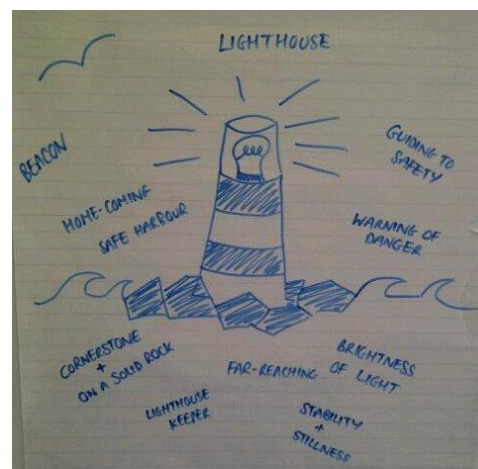 LIGHTHOUSE
BEACON
GUIDING TO
SAFETY
HOME-COMING
SAFE HARBOUR
WARNING OF
DANGER
CORNERSTONE
+
ON A SOLID ROCK
FAR-REACHING
BRIGHTNESS
OF LIGHT
LIGHTHOUSE
KEEPER
STABILITY
+
STILLNESS